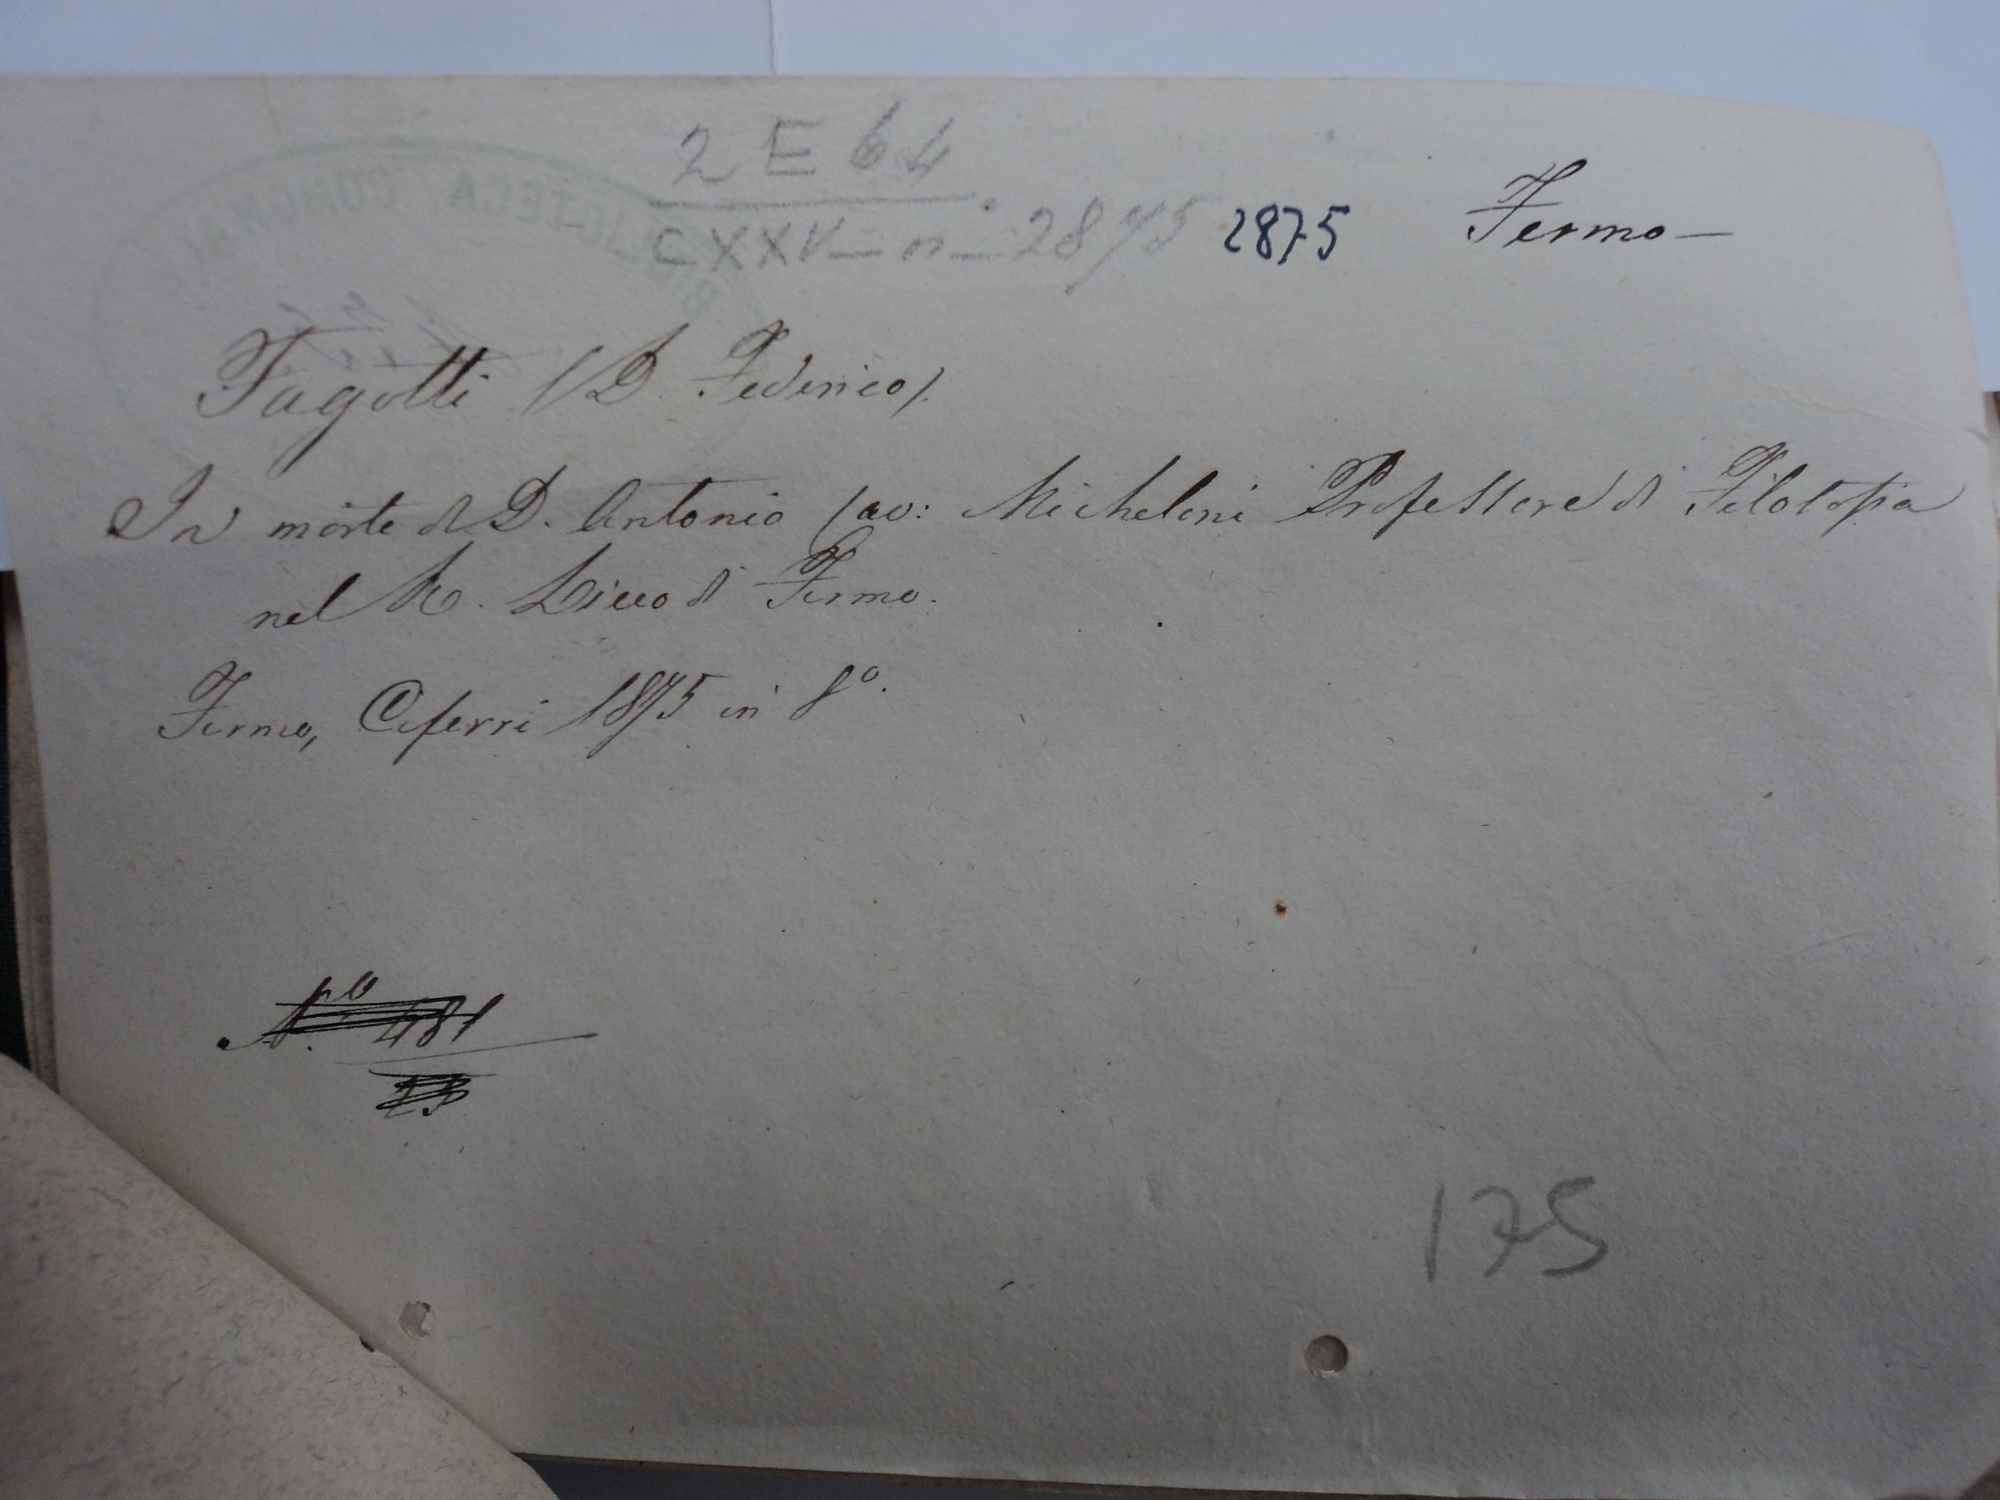 2 E 64
CXXV — n — 2875 2875 Fermo —
Fagotti (D. Federico).
In morte di D. Antonio Cav: Micheloni Professore di Filosofia
nel R. Liceo di Fermo.
Fermo, Ciferri 1875 in 8º.
Nº. 481
175